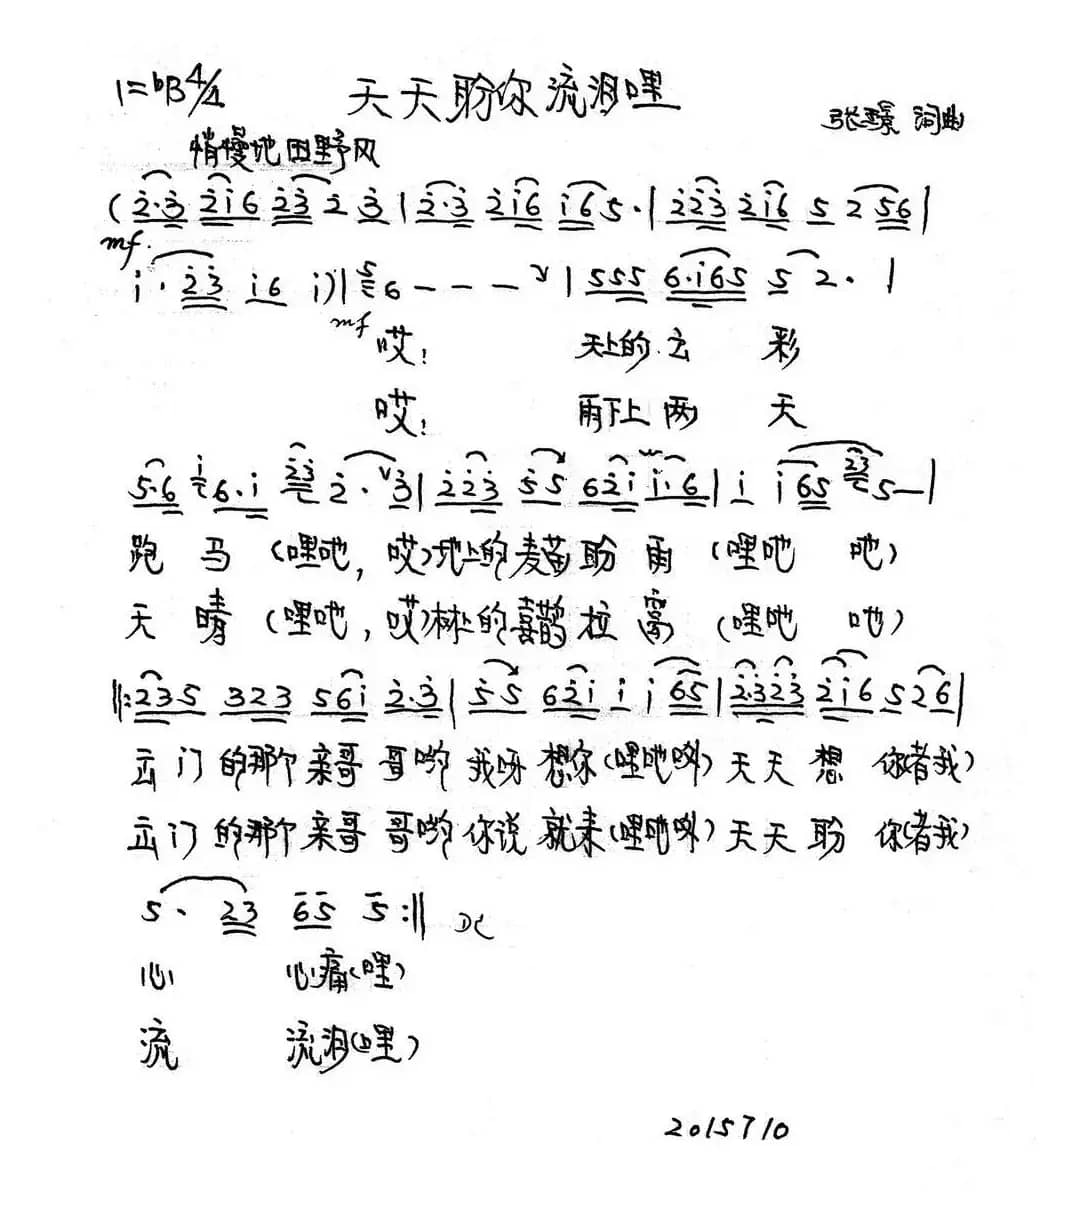 1=bB4/4 天天盼你流泪哩
张璟 词曲
悄慢地田野风
(2·3 2i6 23 2 3|2·3 2i6 i65·|223 2i6 5 2 56|
mf.
i·23 i6 i)|5 6 - - - ˅|555 6·i65 5 2·|
mf
哎! 天上的云 彩
哎! 雨下上两 天
5·6 i 6·i 23 2·˅3|223 55 62i i·6|i i65 23 5—|
跑 马 (哩吔,哎)地上的麦苗盼 雨 (哩吔 吔)
天 晴 (哩吔,哎)林上的喜鹊拉 窝 (哩吔 吔)
‖:235 323 56i 2·3|55 62i i i65|2·323 2i6 526|
出门的那个亲哥哥哟 我呀想你(哩吔哟)天天想 你(者我)
出门的那个亲哥哥哟 你说就来(哩吔哟)天天盼 你(者我)
5· 23 65 5:‖ DC
心 心痛(哩)
流 流泪(哩)
2015710